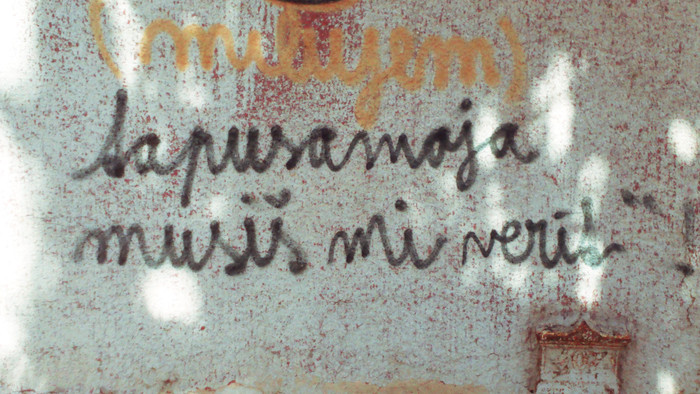 (milujem)
Lapusamoja
musíš mi veriť"